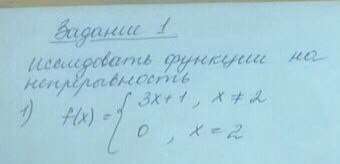 Задание 1
исследовать функции на
непрерывность
1) f(x) = { 3x+1 , x ≠ 2
0 , x = 2